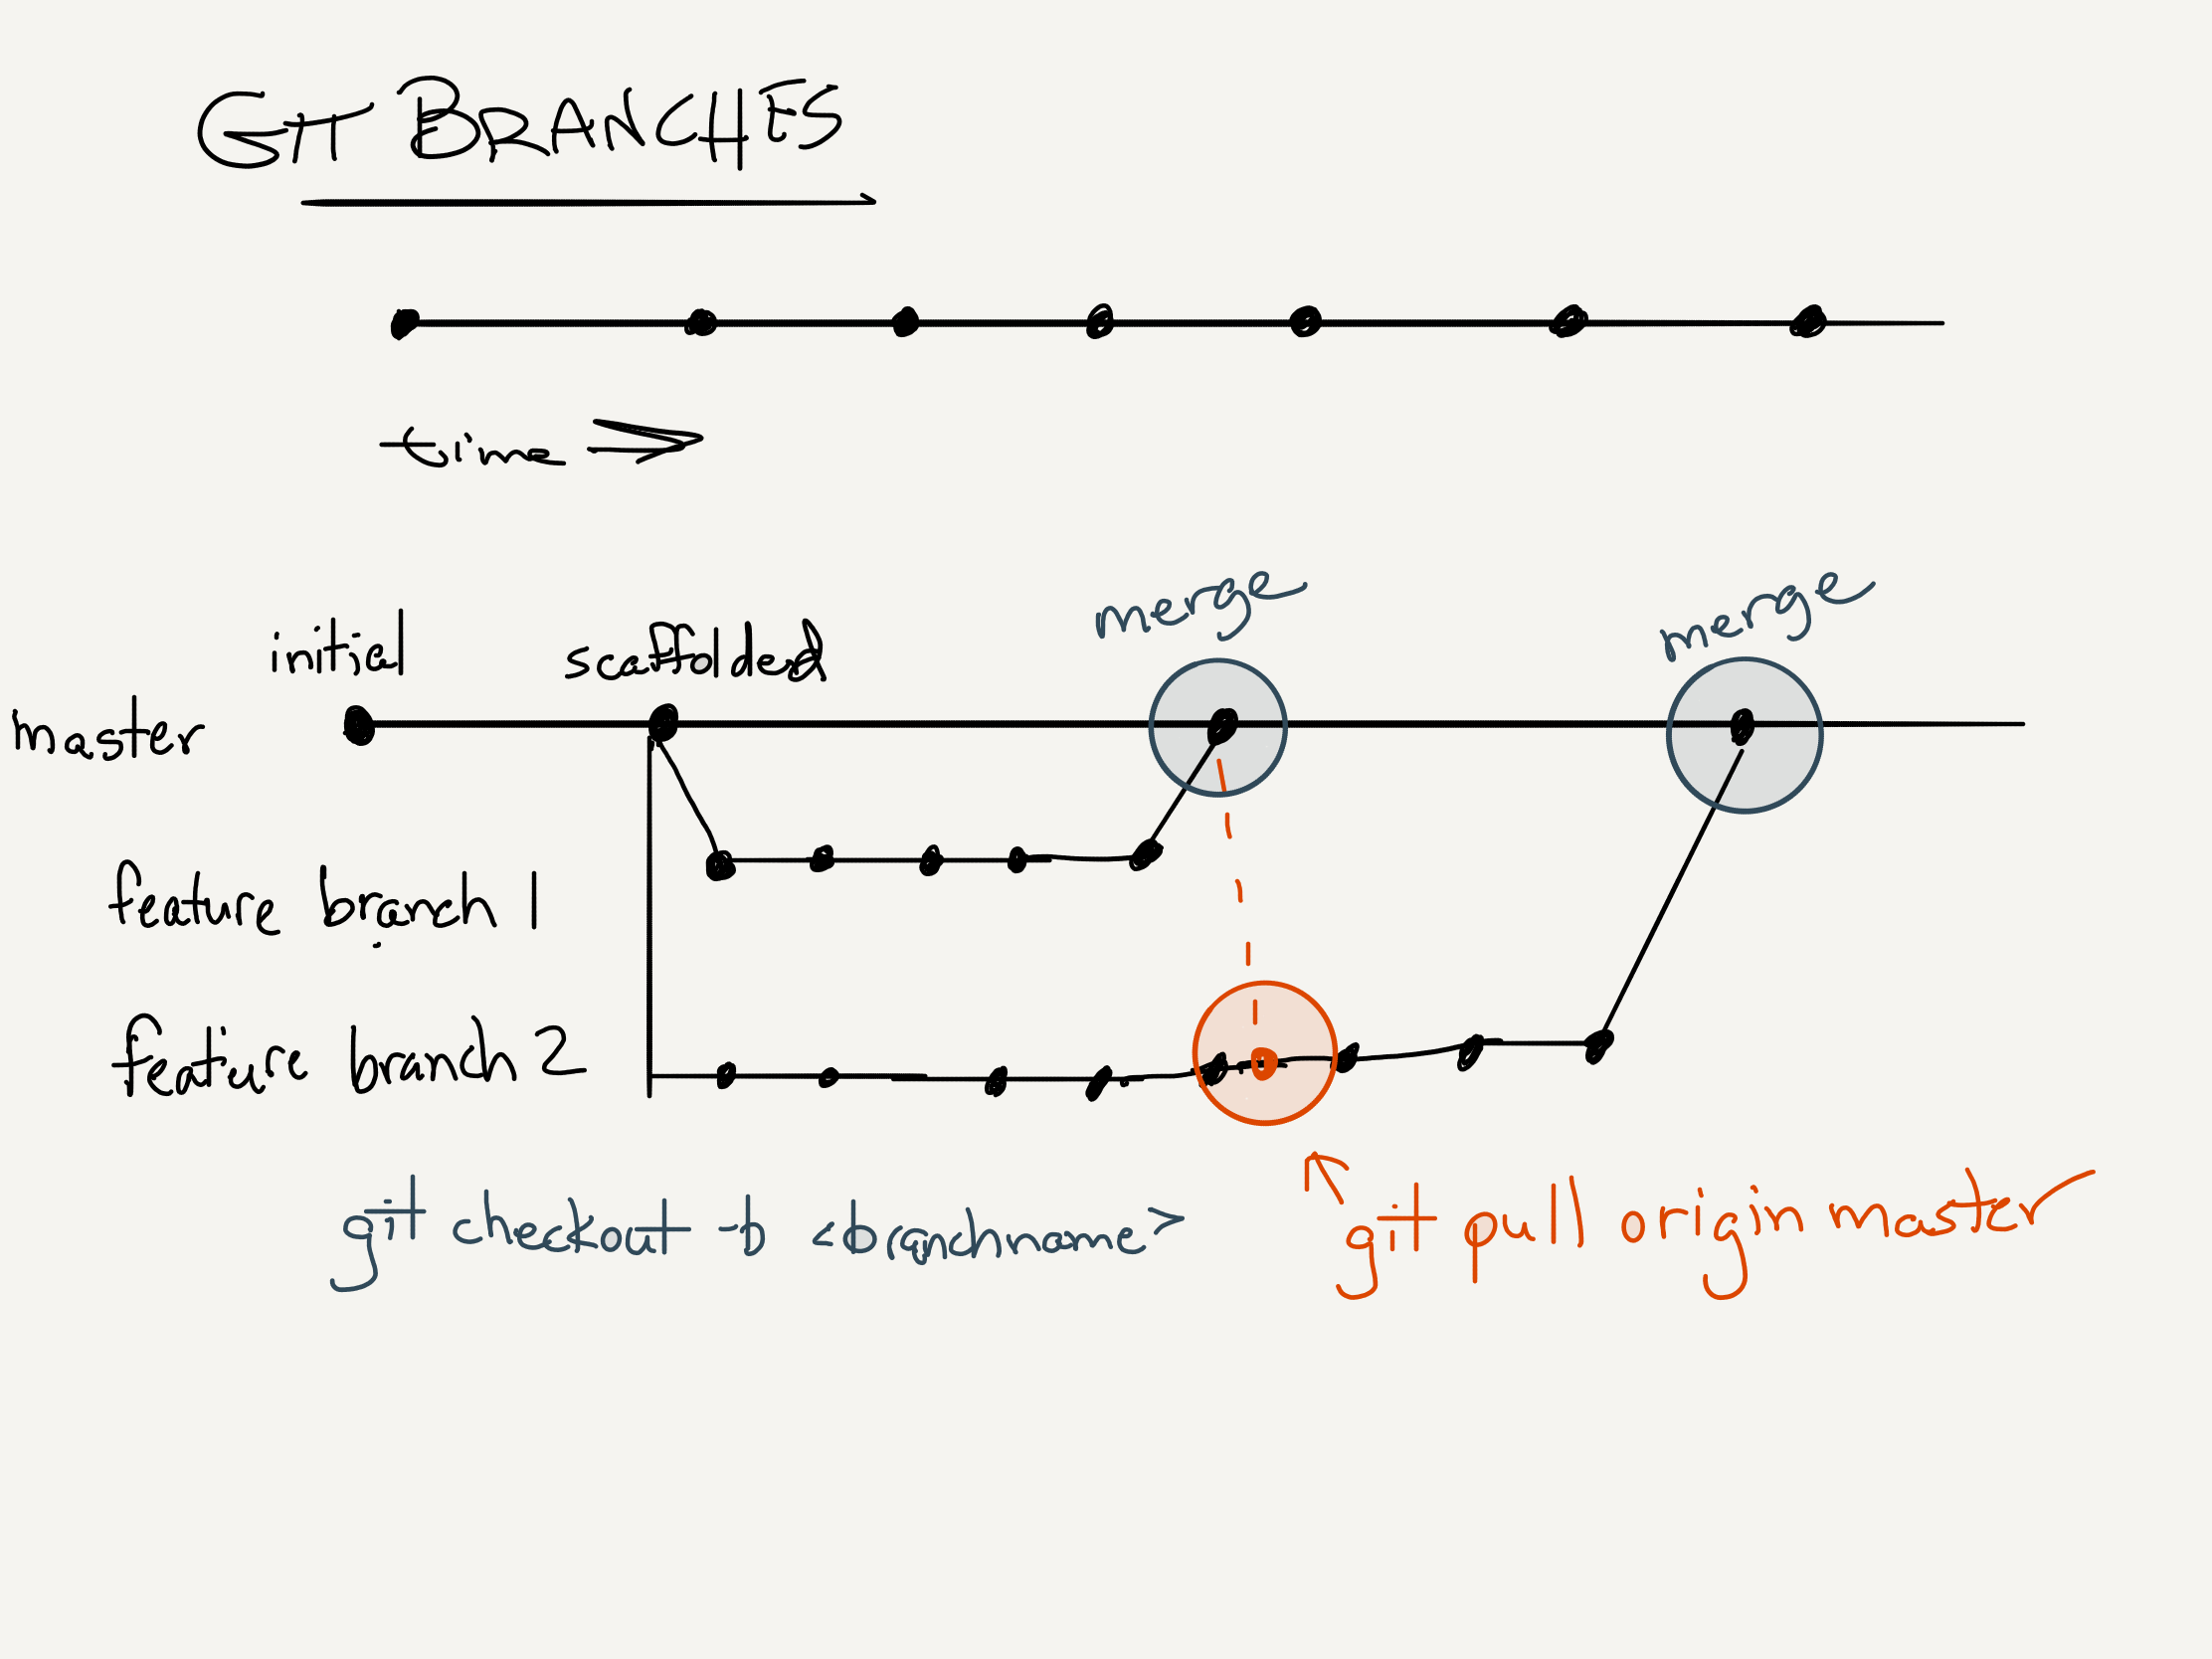 GIT BRANCHES
time
merge
merge
initial
scaffolded
master
feature branch 1
feature branch 2
git checkout -b <branchname>
git pull origin master